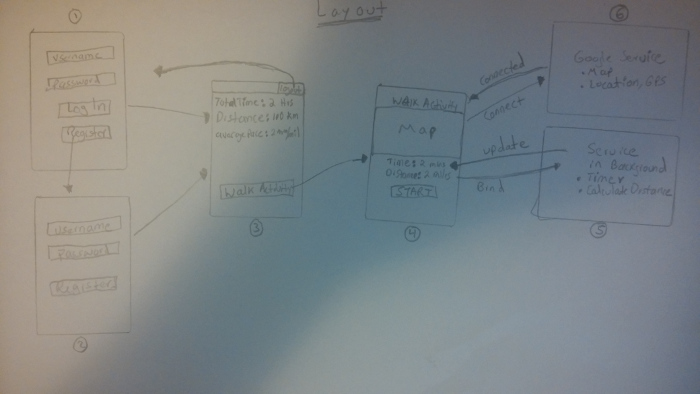 Layout
①
username
Password
Log In
Register
②
username
Password
Register
③
Total Time: 2 Hrs
Distance: 100 km
Walk Activity
④
Walk Activity
Map
Time: 2
Distance: 2
START
connected
connect
update
Bind
⑥
Google Service
• Map
• Location, GPS
Service
in Background
• Timer
• Calculate Distance
⑤